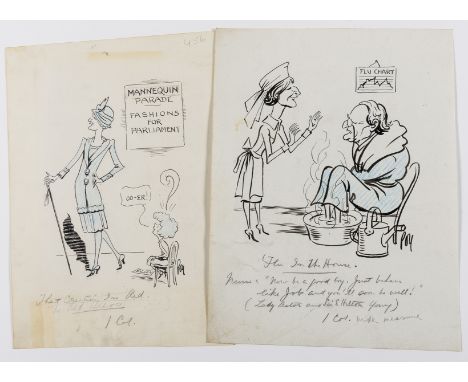 456
MANNEQUIN
PARADE
FASHIONS
FOR
PARLIAMENT
OO-ER!
That In Red.
1 Col.
FLU CHART
"Flu In The House.
Nurse "Now be a good boy. Just behave
like Job and you'll soon be well!"
(Lady Astor and Sir E Hilton Young)
1 Col.